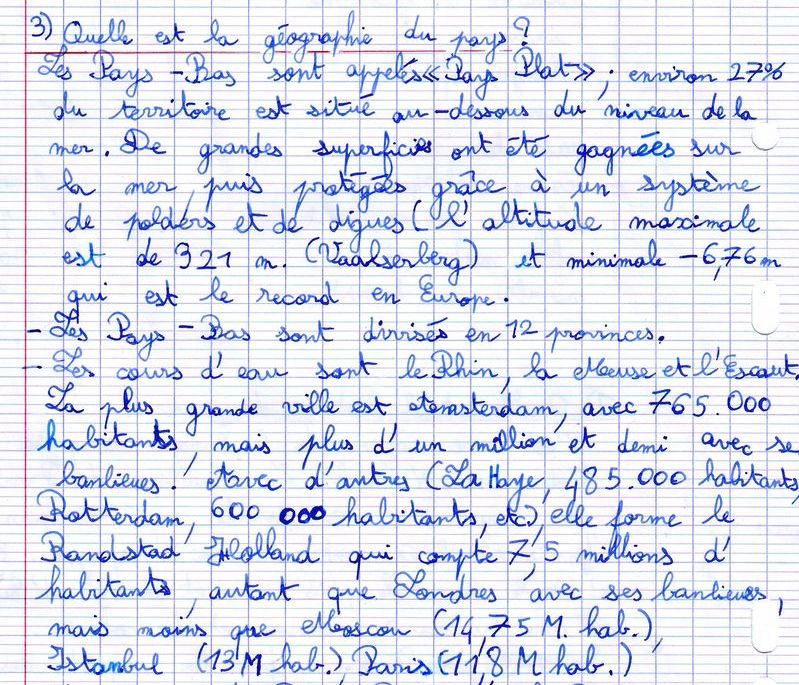 3) Quelle est la géographie du pays ?
Les Pays-Bas sont appelés « Pays Plat » ; environ 27%
du territoire est situé au-dessous du niveau de la
mer. De grandes superficies ont été gagnées sur
la mer, puis protégées grâce à un système
de polders et de digues (l'altitude maximale
est de 321 m. (Vaalserberg) et minimale -6,76 m
qui est le record en Europe.
- Les Pays-Bas sont divisés en 12 provinces.
- Les cours d'eau sont le Rhin, la Meuse et l'Escaut.
La plus grande ville est Amsterdam, avec 765.000
habitants, mais plus d'un million et demi avec se
banlieues. Avec d'autres (La Haye, 485.000 habitants,
Rotterdam, 600 000 habitants, etc.), elle forme le
Randstad Holland qui compte 7,5 millions d'
habitants, autant que Londres avec ses banlieues,
mais moins que Moscou (14,75 M. hab.),
Istanbul (13 M hab.), Paris (11,8 M hab.)